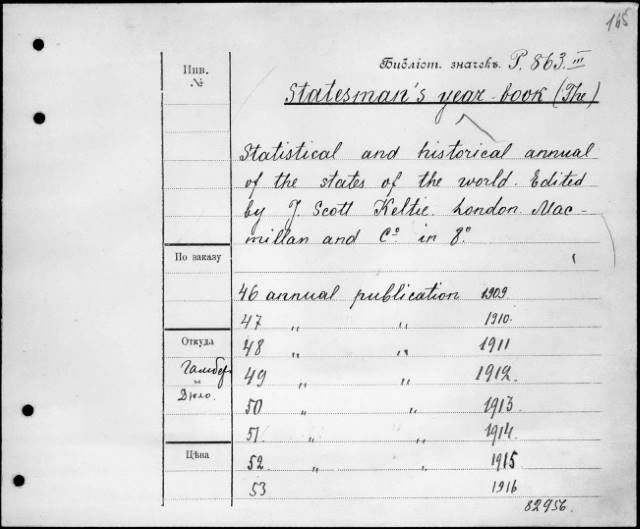 165
Библіот. значекъ P. 863. III
Инв.
№
Statesman's year-book (The)
Statistical and historical annual
of the states of the world. Edited
by J. Scott Keltie. London. Mac-
millan and Cº in 8º
По заказу
46 annual publication 1909.
47 " " 1910.
Откуда
48 " " 1911
49 " " 1912.
и
Дюло.
50 " " 1913.
51. " " 1914.
Цѣна
52. " " 1915
53 1916
82956.